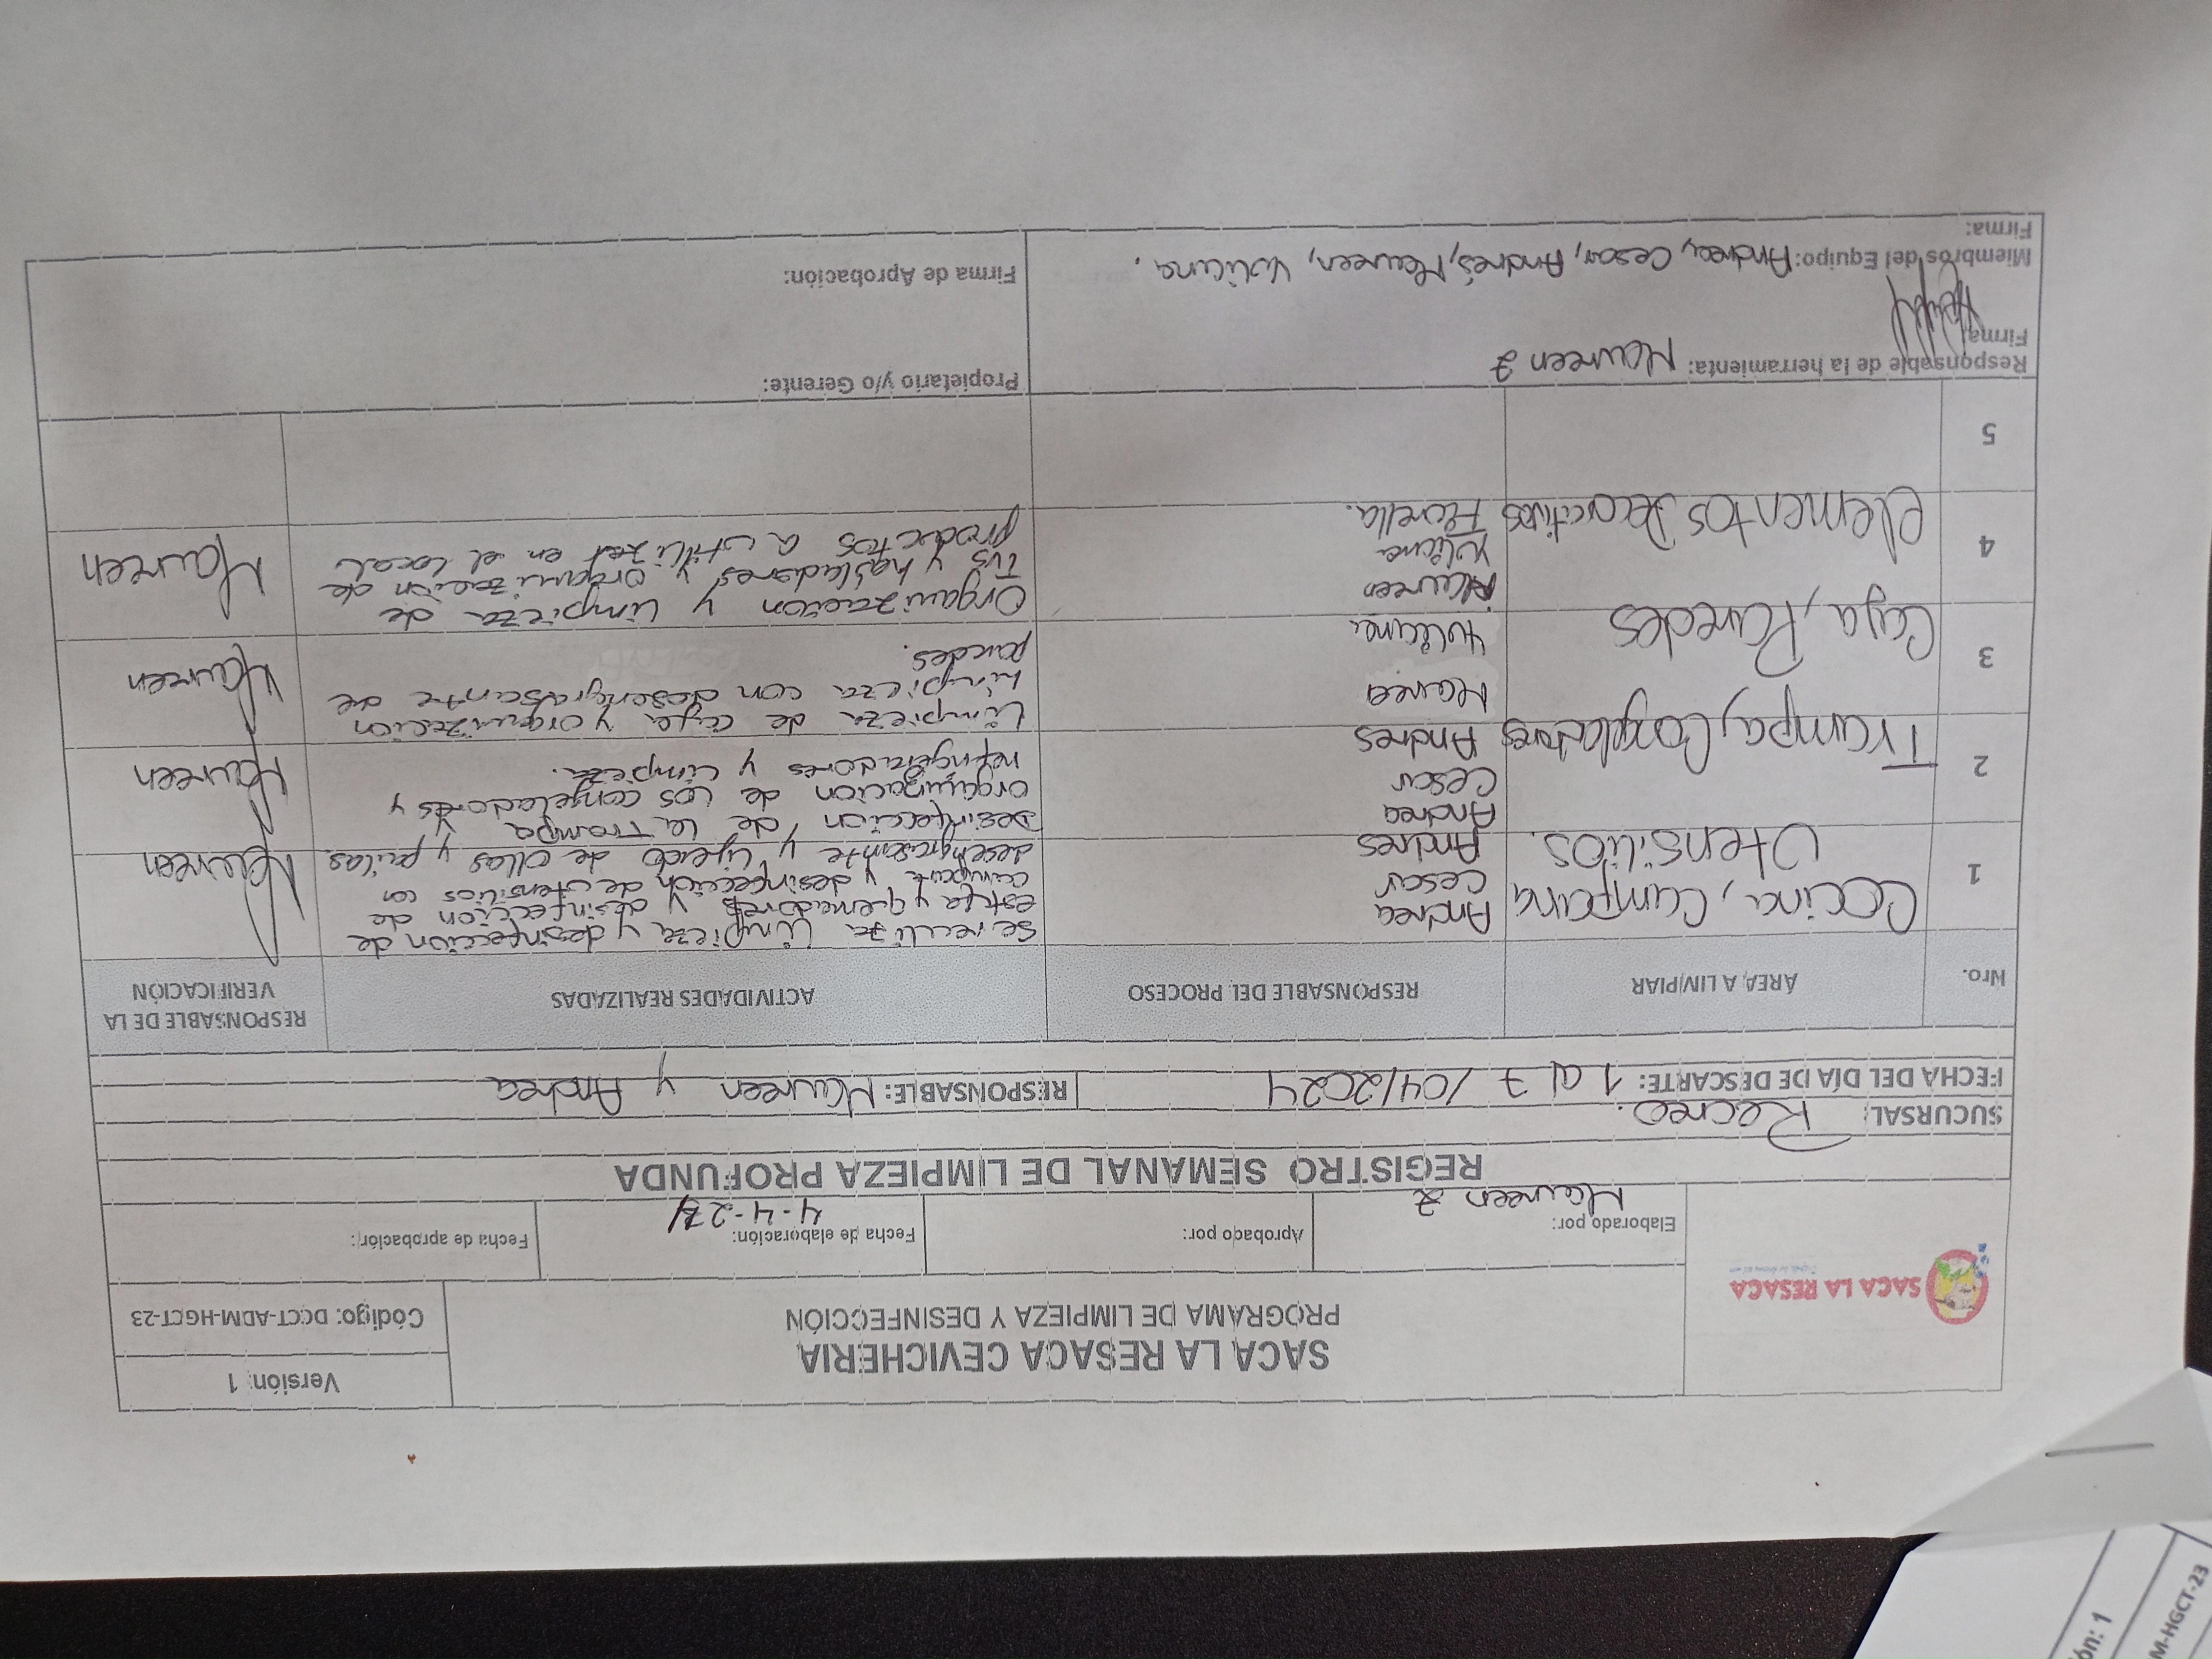 SACA LA RESACA
SACA LA RESACA CEVICHERIA
PROGRAMA DE LIMPIEZA Y DESINFECCIÓN
Versión 1
Código: DCCT-ADM-HGCT-23
Elaborado por:
Maureen Z
Aprobado por:
Fecha de elaboración:
4-4-24
Fecha de aprobación:
REGISTRO SEMANAL DE LIMPIEZA PROFUNDA
SUCURSAL: Recreo.
FECHA DEL DÍA DE DESCARTE: 1 al 7 /04/2024
RESPONSABLE: Maureen y Andrea
Nro.
ÁREA A LIMPIAR
RESPONSABLE DEL PROCESO
ACTIVIDADES REALIZADAS
RESPONSABLE DE LA
VERIFICACIÓN
1
Cocina, Campana
Utensilios.
Andrea
Cesar
Andres
Se realiza limpieza y desinfección de
estufa y quemadores y desinfección de
campana y desinfección de utensilios con
desengrasante y lijado de ollas y pailas.
Maureen
2
Trampa, Congeladores
Andrea
Cesar
Andres
Desinfección de la Trampa y
organización de los congeladores y
refrigeradores y limpieza.
Maureen
3
Caja, Paredes
Maureen
Yuliana
Limpieza de caja y organización
Limpieza con desengrasante de
paredes.
Maureen
4
elementos Decorativos
Maureen
Yuliana
Fiorella.
Organización y limpieza de
TVs y habladores y organización de
productos a utilizar en el local
Maureen
5
Responsable de la herramienta: Maureen Z
Firma:
Propietario y/o Gerente:
Miembros del Equipo: Andrea, Cesar, Andrés, Maureen, Yuliana.
Firma:
Firma de Aprobación:
ón: 1
M-HGCT-23